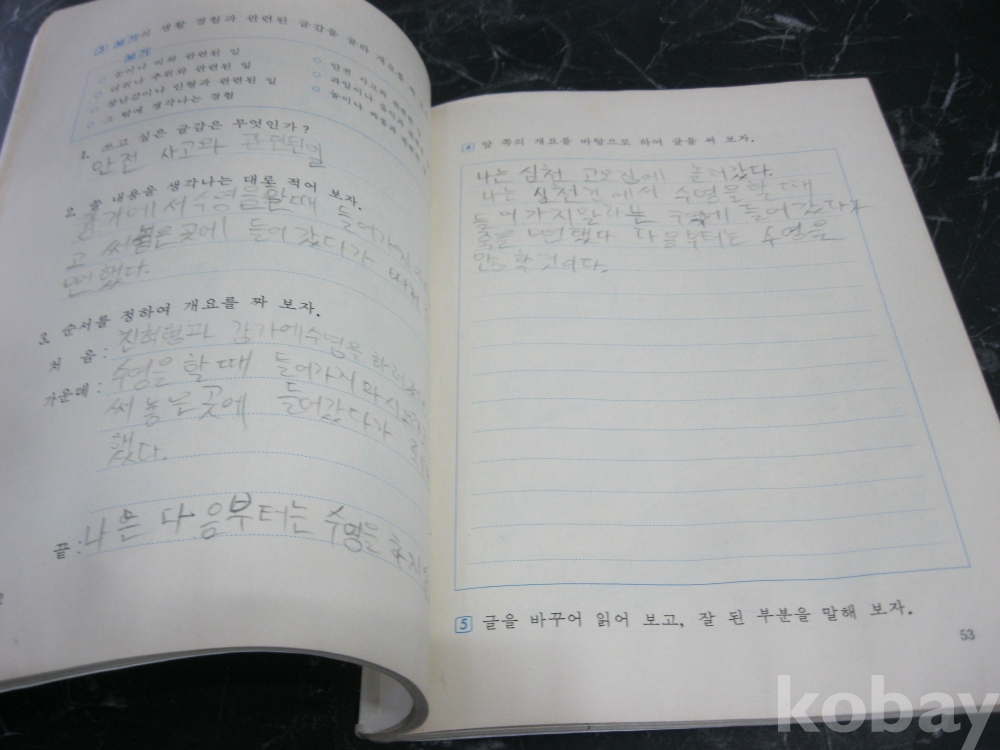 3 보기의 생활 경험과 관련된 글감을 골라 개요를
보기
○ 눈이나 비와 관련된 일
○ 더위나 추위와 관련된 일
○ 장난감이나 인형과 관련된 일
○ 그 밖에 생각나는 경험
○ 안전 사고와 관련된
○ 과일이나 음식과
○ 놀이나
1. 쓰고 싶은 글감은 무엇인가?
안전 사고와 관련된일
2. 쓸 내용을 생각나는 대로 적어 보자.
강가에서 수영을할때 들어가지
고 써놓은곳에 들어갔다가
했다.
3. 순서를 정하여 개요를 짜 보자.
처 음: 강가에수영을 하러
가운데: 수영을 할때 들어가지마시오
써 놓은곳에 들어갔다가
했다.
끝: 나는 다음부터는 수영을
4 앞 쪽의 개요를 바탕으로 하여 글을 써 보자.
나는 심천 놀러갔다.
나는 심천 에서 수영을할때
들어가지말라는 곳에들어갔다가
죽을 뻔했다 다음부터는 수영을
안 할 것이다.
5 글을 바꾸어 읽어 보고, 잘 된 부분을 말해 보자.
53
kobay